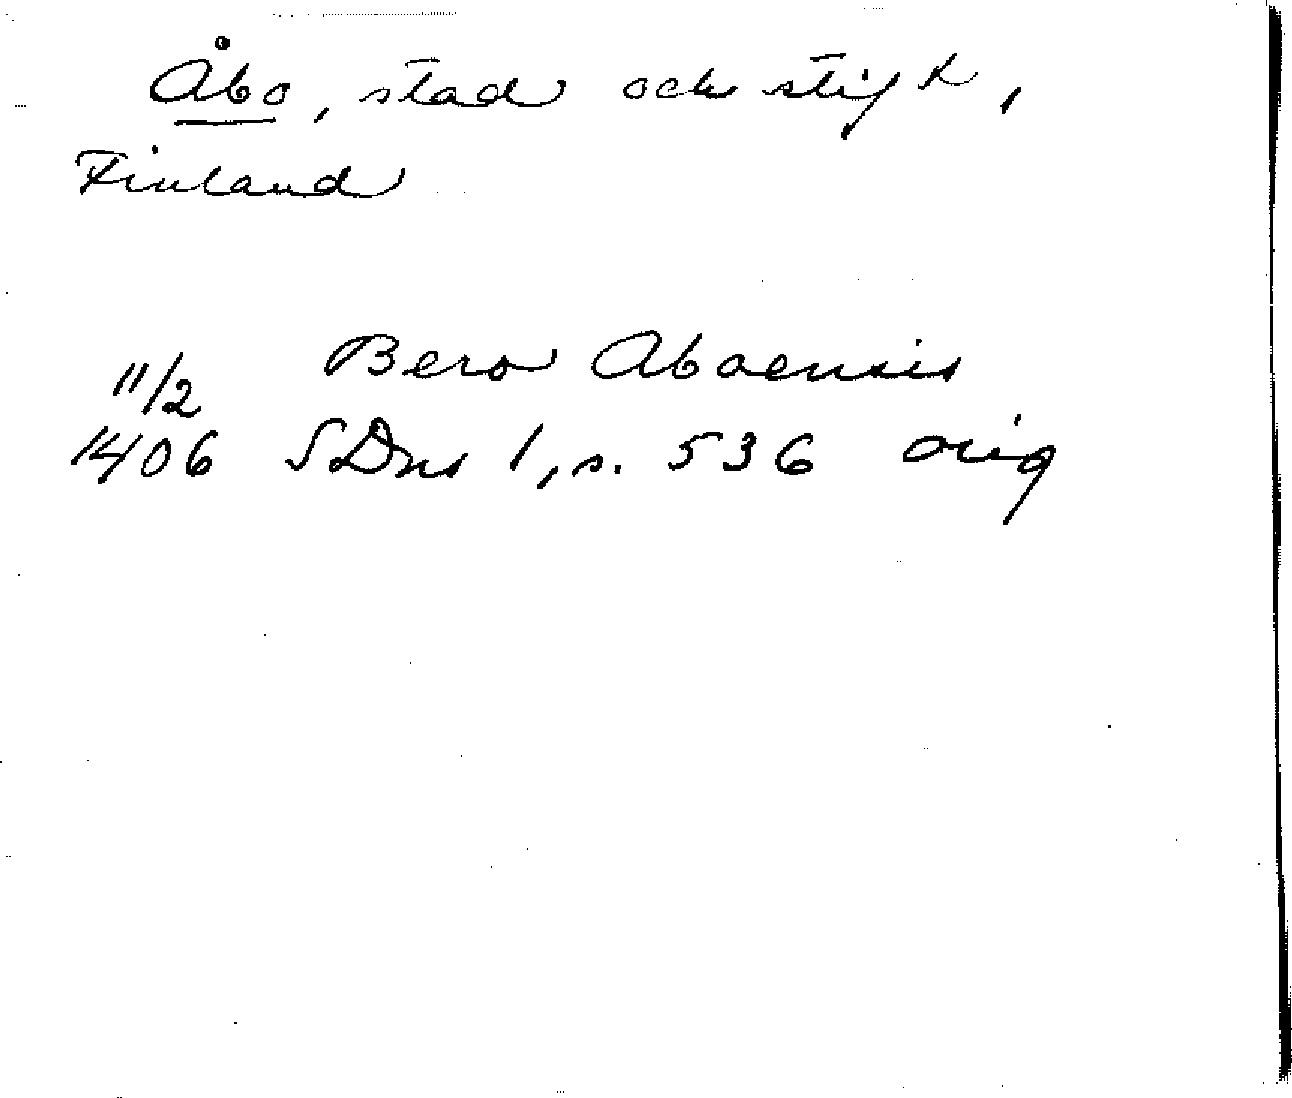 Åbo, stad och stift,
Finland
11/2 Bero Aboensis
1406 SDns 1, s. 536 orig